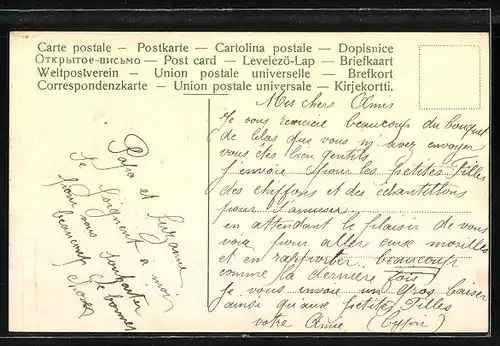 Carte postale — Postkarte — Cartolina postale — Dopisnice
Открытое-письмо — Post card — Levelező-Lap — Briefkaart
Weltpostverein — Union postale universelle — Brefkort
Correspondenzkarte — Union postale universale — Kirjekortti.
Mes chers Amis
Je vous remercie beaucoup du bouquet
de lilas que vous m'avez envoyer
vous êtes bien gentils
j'envoie pour les petites filles
des chiffons et des échantillons
pour s'amuser
en attendant le plaisir de vous
voir pour aller aux morilles
et en rapporter beaucoup
comme la dernière fois
Je vous envoie un Gros Baiser
ainsi qu'aux petites filles
votre Amie
Papa et Suzanne
se joignent a moi
pour vous souhaiter
beaucoup de bonnes
choses